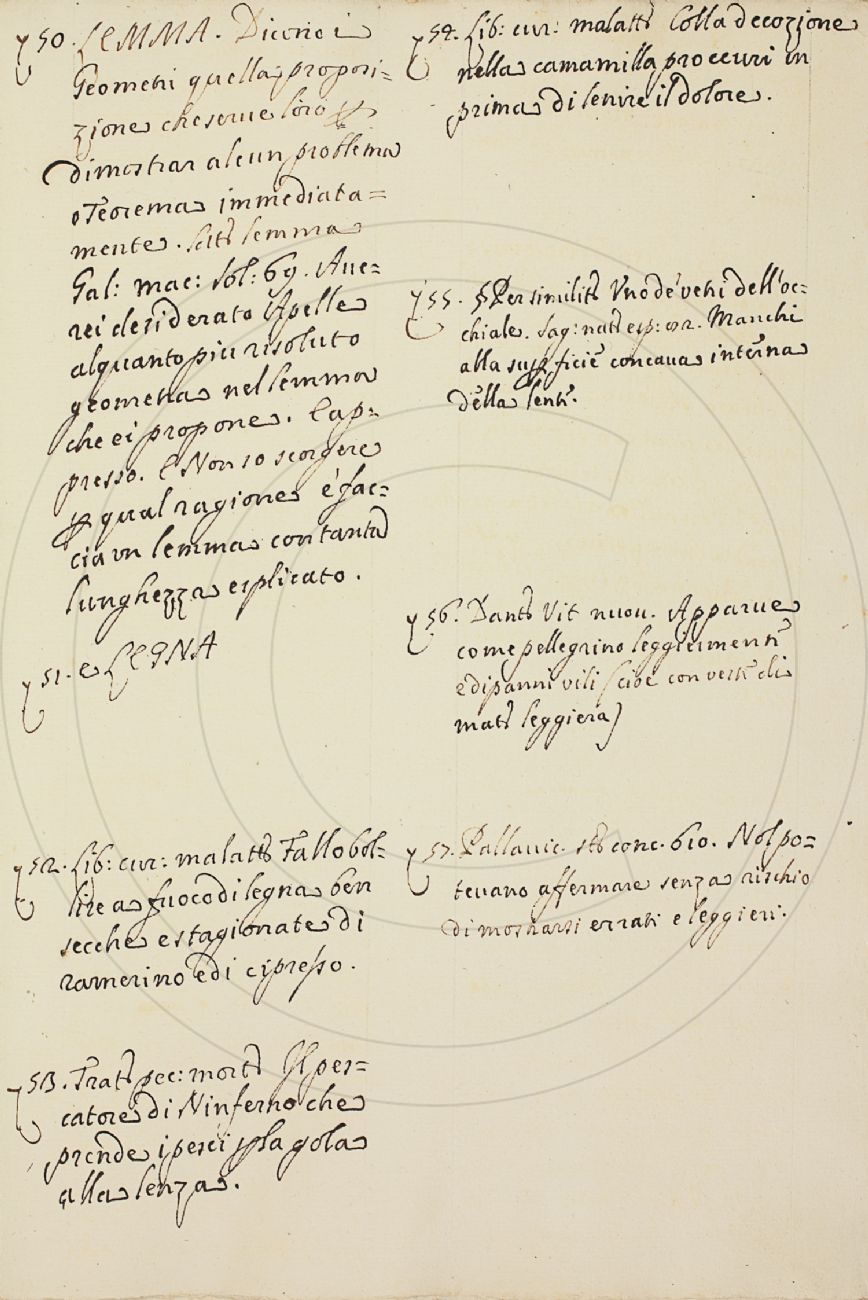 50. LEMMA. Dicono i
Geometri quella proposi=
zione che serve loro
dimostrar alcun problema
o Teorema immediata=
mente. lemma
Gal: mac: sol: 69. Aue=
rei desiderato Apelle
alquanto piu risoluto
geometra nel lemma
che ei propone. E ap=
presso. E Non so scorgere
qual ragione e' fac=
cia un lemma con tanta
lunghezza esplicato.
51. e LEGNA
52. Lib: cur: malatt: Fallo bol=
lire a fuoco di legna ben
secche e stagionate di
ramerino e di cipresso.
53. Tratt: pec: mort: Il pes=
catore di Ninferno che
prende i pesci p la gola
alla lenza.
54. Lib: cur: malatt: Colla decozione
nella camamilla proccuri in
prima di lenire il dolore.
55. § Per similit: Uno de' vetri dell'oc=
chiale. Sag: nat: esp: Manchi
alla supficie concava interna
della lente.
56. Dant: Vit nuov. Apparve
come pellegrino leggiermente
e di panni vili (cioè con veste di
mat: leggiera)
57. Pallavic. st: conc. 610. Nol po=
tevano affermare senza rischio
di mostrarsi errati e leggieri.